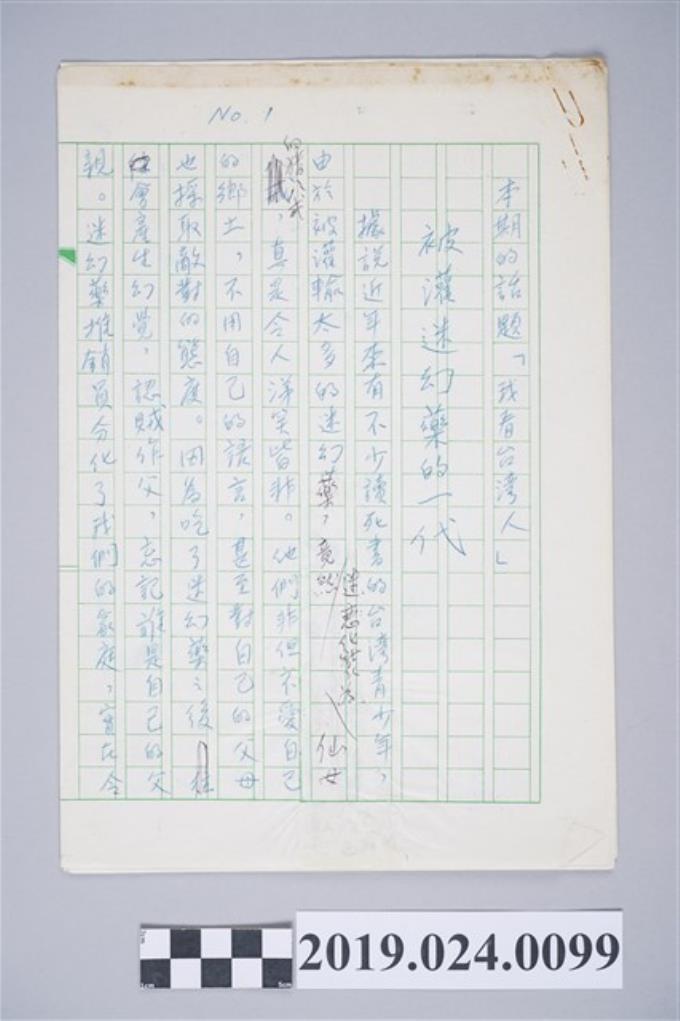 No. 1
本期的話題「我看台湾人」
被灌迷幻藥的一代
據說近年來有不少讀死書的台湾青少年，
由於被灌輸太多的迷幻藥，竟然迷戀仙女
的 ，真是令人涕笑皆非。他們非但不愛自己
的鄉土，不用自己的語言，甚至對自己的父母
也採取敵對的態度。因為吃了迷幻藥之後
會產生幻覺，認賊作父，忘記誰是自己的父
親。迷幻藥推銷員分化了我們的家庭，實在令
2019.024.0099